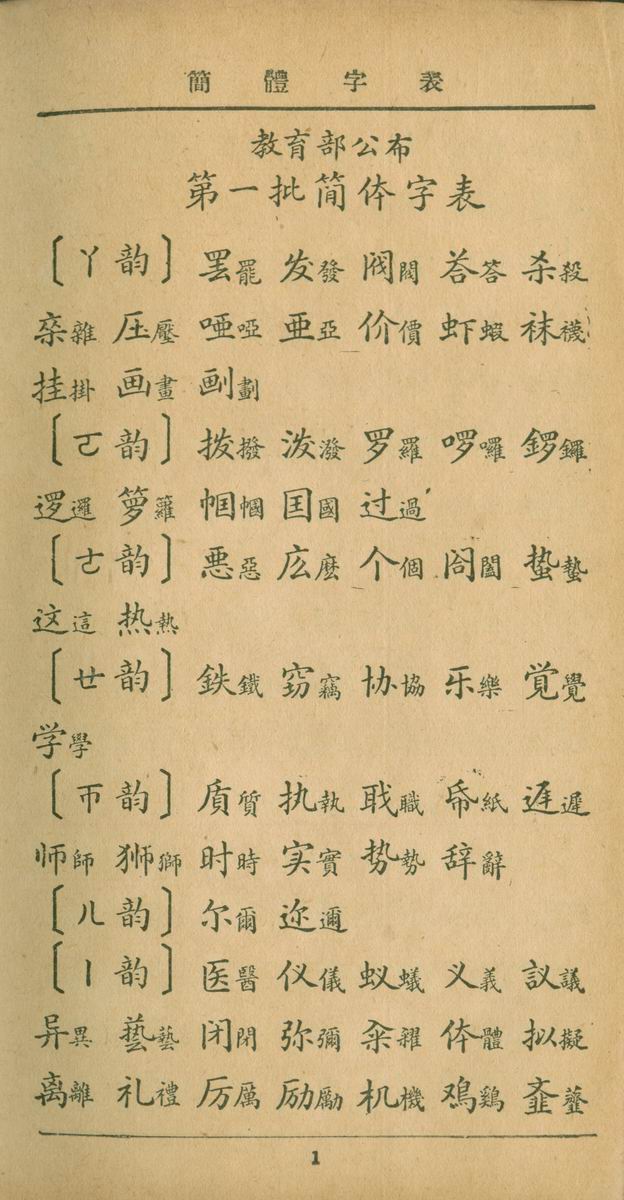 簡體字表
教育部公布
第一批简体字表
〔ㄚ韵〕罢罷 发發 阀閥 荅答 杀殺
杂雜 压壓 哑啞 亜亞 价價 虾蝦 袜襪
挂掛 画畫 劃
〔ㄛ韵〕拨撥 泼潑 罗羅 啰囉 鑼
逻邏 箩籮 帼幗 囯國 过過
〔ㄜ韵〕悪惡 庅麽 个個 阁閤 蛰蟄
这這 热熱
〔ㄝ韵〕鉄鐵 窃竊 协協 乐樂 覚覺
学學
〔ㄭ韵〕质質 执執 职職 帋紙 遅遲
师師 狮獅 时時 实實 势勢 辞辭
〔ㄦ韵〕尔爾 迩邇
〔ㄧ韵〕医醫 仪儀 蚁蟻 义義 議
异異 藝 闭閉 弥彌 籴糴 体體 拟擬
离離 礼禮 厉厲 励勵 机機 鸡鷄 齑
1